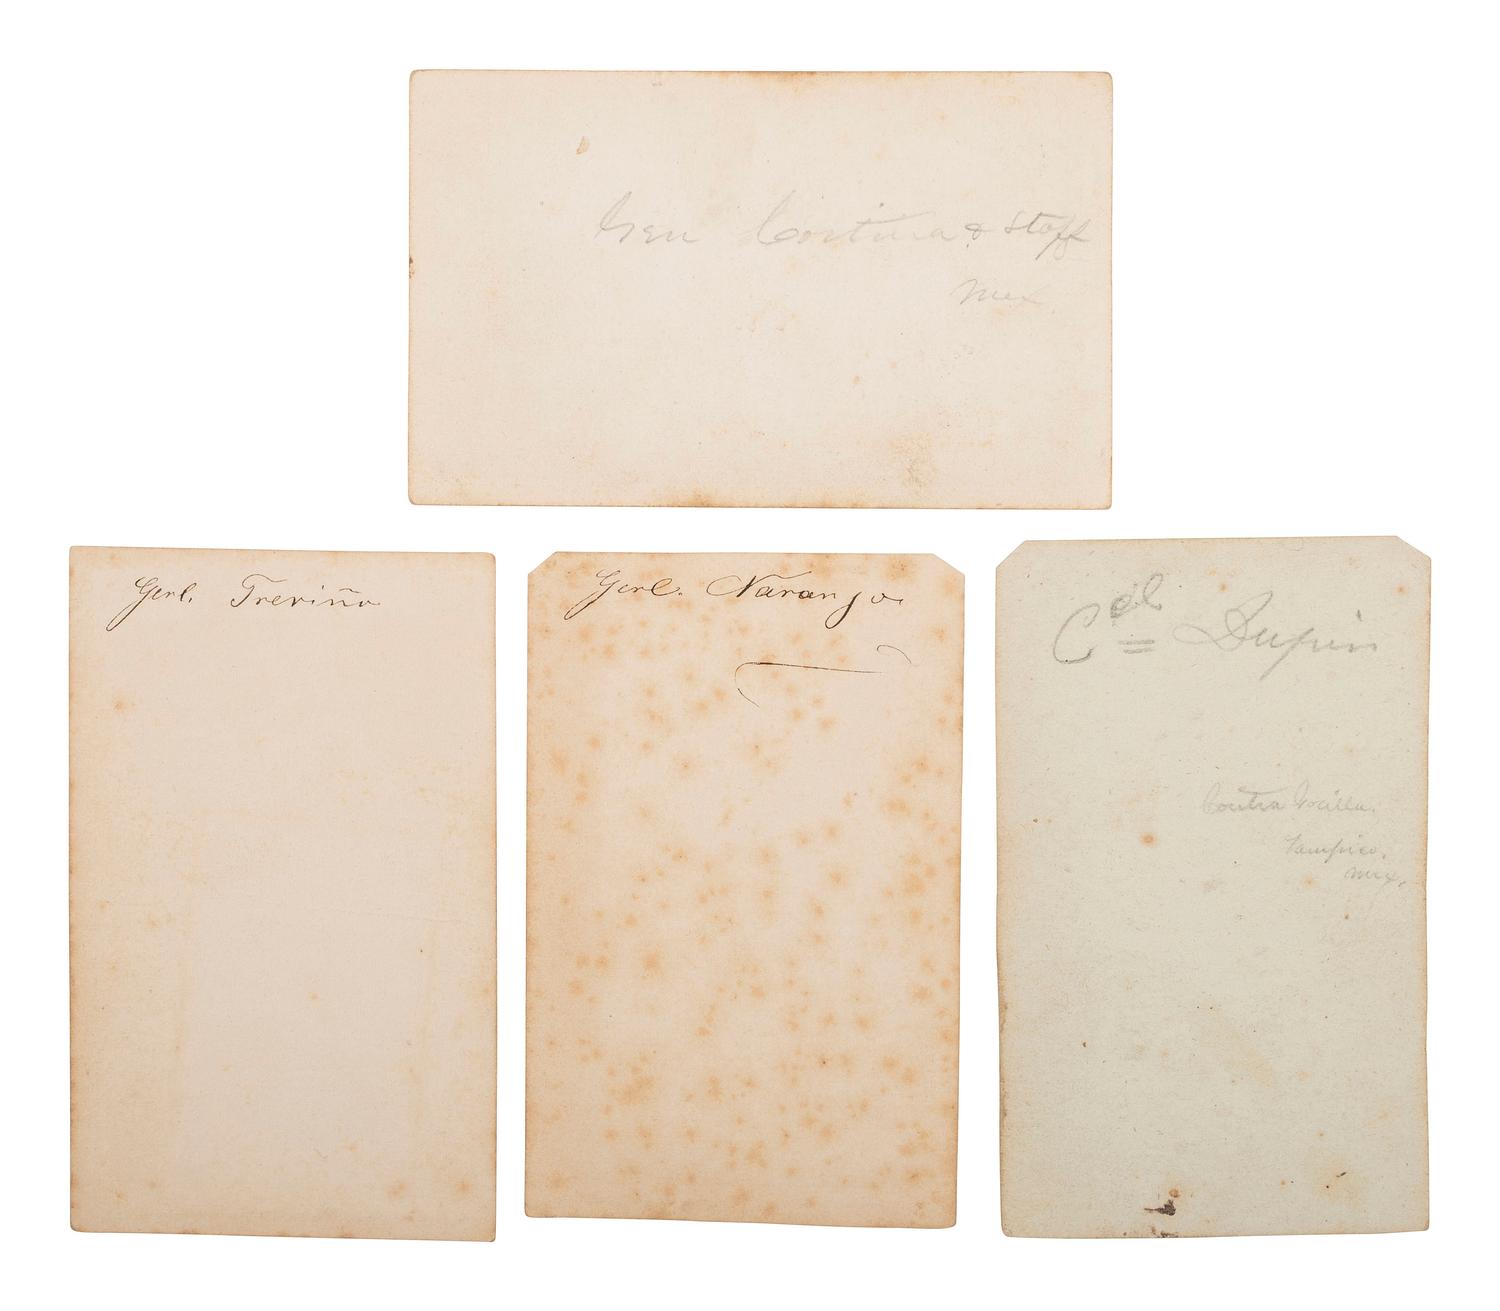 Gen Cortina & Staff
Mex
Genl. Treviño
Genl. Naranjo
Cel Dupin
Contra Gocilla.
Tampico.
Mex.